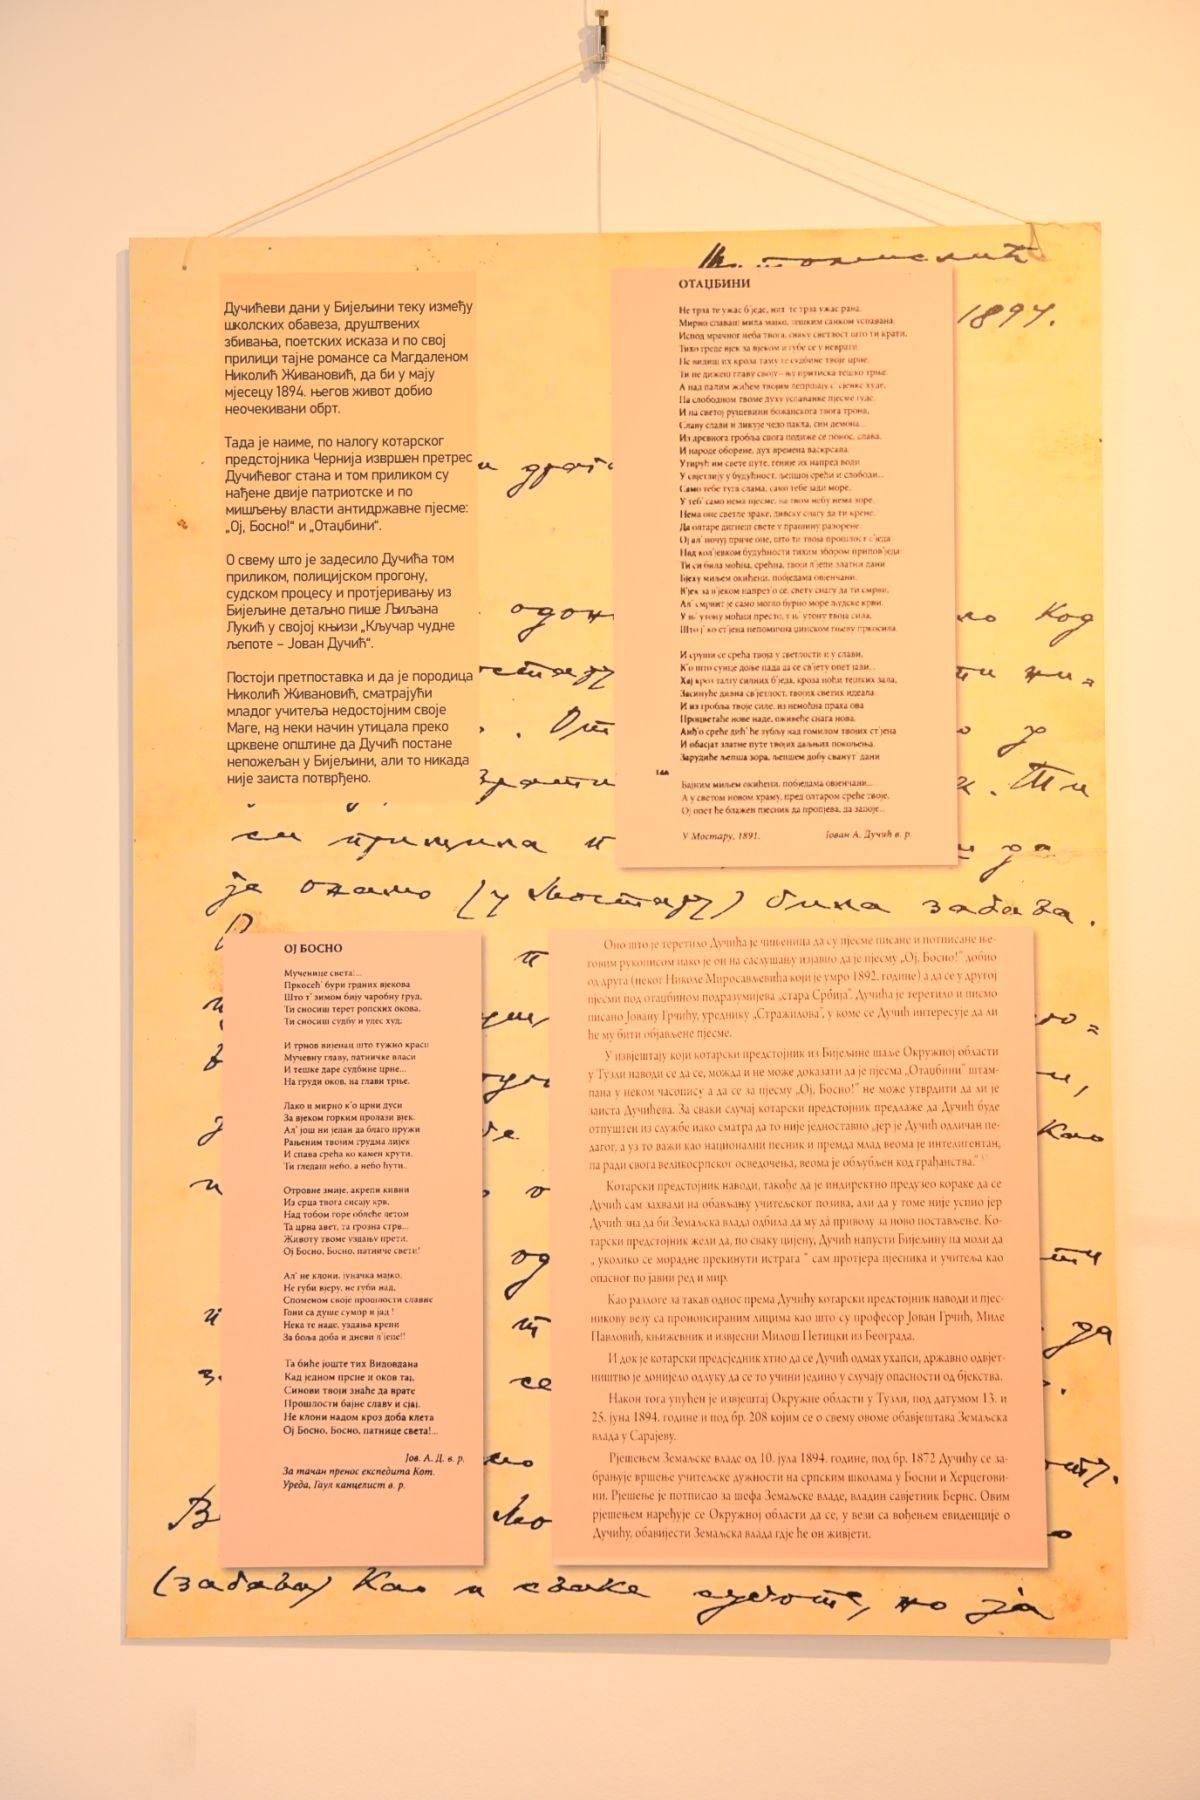 Дучићеви дани у Бијељини теку између
школских обавеза, друштвених
збивања, поетских исказа и по свој
прилици тајне романсе са Магдаленом
Николић Живановић, да би у мају
мјесецу 1894. његов живот добио
неочекивани обрт.
Тада је наиме, по налогу котарског
предстојника Чернија извршен претрес
Дучићевог стана и том приликом су
нађене двије патриотске и по
мишљењу власти антидржавне пјесме:
„Ој, Босно!“ и „Отаџбини“.
О свему што је задесило Дучића том
приликом, полицијском прогону,
судском процесу и протјеривању из
Бијељине детаљно пише Љиљана
Лукић у својој књизи „Кључар чудне
љепоте – Јован Дучић“.
Постоји претпоставка и да је породица
Николић Живановић, сматрајући
младог учитеља недостојним своје
Маге, на неки начин утицала преко
црквене општине да Дучић постане
непожељан у Бијељини, али то никада
није заиста потврђено.
1894.
ОТАЏБИНИ
Не трза те ужас б'једе, нит' те трза ужас рана.
Мирно спаваш мила мајко, тешким санком успавана.
Испод мрачног неба твога, сваку светлост што ти крати,
Тихо греде вјек за вјеком и губе се у неврати.
Не видиш их кроза таму те судбине твоје црне.
Ти не дижеш главу своју – њу притиска тешко трње.
А над палим жићем твојим лепршају с' сјенке худе,
На слободном твоме духу успаванке пјесме гуде.
И на светој рушевини божанскога твога трона,
Славу слави и ликује чедо пакла, син демона...
Из древнога гробља свога подиже се понос, слава,
И народе оборене, дух времена васкрсава.
Утирућ им свете путе, геније их напред води
У свјетлију у будућност, љепшој срећи и слободи...
Само тебе туга слама, само тебе јади море,
У теб' само нема пјесме, на твом небу нема зоре.
Нема оне светле зраке, дивску снагу да ти крене,
Да олтаре дигнеш свете у прашину разорене.
Ој ал' ночуј приче оне, што ти твоја прошлост сљеда
Над кол'јевком будућности тихим збором приповједа:
Ти си била моћна, срећна, твоји л'јепи златни дани
Бјеху миљем окићени, побједама овјенчани.
В'јек за в'јеком напрез'о се, свету снагу да ти смрви,
Ал' смрвит је само могло бурно море људске крви.
У њ' утону моћни престо, у њ' утону твоја сила,
Што ј' ко ст'јена непомична џинском гњеву пркосила.
И сруши се срећа твоја у светлости и у слави,
К'о што сунце доље пада да се св'јету опет јави...
Хај кроз талгу силних б'једа, кроза ноћи тешких зала,
Засинуће дивна св'јетлост, твојих светих идеала.
И из гробља твоје силе, из немоћна праха ова
Процветаће нове наде, оживеће снага нова.
Анђ'о среће дић' ће зубљу над гомилом твојих ст'јена
И обасјат златне путе твојих даљњих покољења.
Зарудиће љепша зора, љепшем добу сванут' дани
Бајним миљем окићени, побједама овјенчани...
А у светом новом храму, пред олтаром среће твоје,
Ој опет ће блажен пјесник да пропјева, да запоје...
У Мостару, 1891. Јован А. Дучић в. р.
си причина
ја онамо (у Мостару) била забава.
ОЈ БОСНО
Мученице света!...
Пркосећ' бури грдних вјекова
Што т' зимом бију чаробну груд,
Ти сносиш терет ропских окова,
Ти сносиш судбу и удес худ.
И трнов вијенац што тужно краси
Мучевну главу, патничке власи
И тешке даре судбине црне...
На груди оков, на глави трње.
Лако и мирно к'о црни дуси
За вјеком горким пролази вјек.
Ал' још ни један да благо пружи
Рањеним твојим грудма лијек
И спава срећа ко камен крути.
Ти гледаш небо, а небо ћути..
Отровне змије, акрепи кивни
Из срца твога сисају крв,
Над тобом горе облеће летом
Та црна авет, та грозна стрв...
Животу твоме уздању прети,
Ој Босно, Босно, патниче свети!
Ал' не клони, јуначка мајко,
Не губи вјеру, не губи над,
Споменом своје прошлости славне
Гони са душе сумор и јад !
Нека те наде, уздања крепи
За боља доба и дневи л'јепе!!
Та биће јоште тих Видовдана
Кад једном прсне и оков тај,
Синови твоји знаће да врате
Прошлости бајне славу и сјај.
Не клони надом кроз доба клета
Ој Босно, Босно, патнице света!...
Јов. А. Д. в. р.
За тачан пренос експедита Кот.
Уреда, Гаул канцелист в. р.
Оно што је теретило Дучића је чињеница да су пјесме писане и потписане ње-
говим рукописом иако је он на саслушању изјавио да је пјесму „Ој, Босно!“ добио
од друга (неког Николе Миросављевића који је умро 1892. године) а да се у другој
пјесми под отаџбином подразумијева „стара Србија“. Дучића је теретило и писмо
писано Јовану Грчићу, уреднику „Стражилова“, у коме се Дучић интересује да ли
ће му бити објављене пјесме.
У извјештају који котарски предстојник из Бијељине шаље Окружној области
у Тузли наводи се да се, можда и не може доказати да је пјесма „Отаџбини“ штам-
пана у неком часопису а да се за пјесму „Ој, Босно!“ не може утврдити да ли је
заиста Дучићева. За сваки случај котарски предстојник предлаже да Дучић буде
отпуштен из службе иако сматра да то није једноставно „јер је Дучић одличан пе-
дагог, а уз то важи као национални песник и премда млад веома је интелигентан,
па ради свога великосрпског осведочења, веома је обљубљен код грађанства.“
Котарски предстојник наводи, такође да је индиректно предузео кораке да се
Дучић сам захвали на обављању учитељског позива, али да у томе није успио јер
Дучић зна да би Земаљска влада одбила да му дâ приволу за ново постављење. Ко-
тарски предстојник жели да, по сваку цијену, Дучић напусти Бијељину па моли да
„ уколико се морадне прекинути истрага “ сам протјера пјесника и учитеља као
опасног по јавни ред и мир.
Као разлоге за такав однос према Дучићу котарски предстојник наводи и пјес-
никову везу са прононсираним лицима као што су професор Јован Грчић, Миле
Павловић, књижевник и извјесни Милош Петицки из Београда.
И док је котарски предсједник хтио да се Дучић одмах ухапси, државно одвјет-
ништво је донијело одлуку да се то учини једино у случају опасности од бјекства.
Након тога упућен је извјештај Окружне области у Тузли, под датумом 13. и
25. јуна 1894. године и под бр. 208 којим се о свему овоме обавјештава Земаљска
влада у Сарајеву.
Рјешењем Земаљске владе од 10. јула 1894. године, под бр. 1872 Дучићу се за-
брањује вршење учитељске дужности на српским школама у Босни и Херцегови-
ни. Рјешење је потписао за шефа Земаљске владе, владин савјетник Бернс. Овим
рјешењем наређује се Окружној области да се, у вези са вођењем евиденције о
Дучићу, обавијести Земаљска влада гдје ће он живјети.
(забава) Као и сваке суботе, но ја